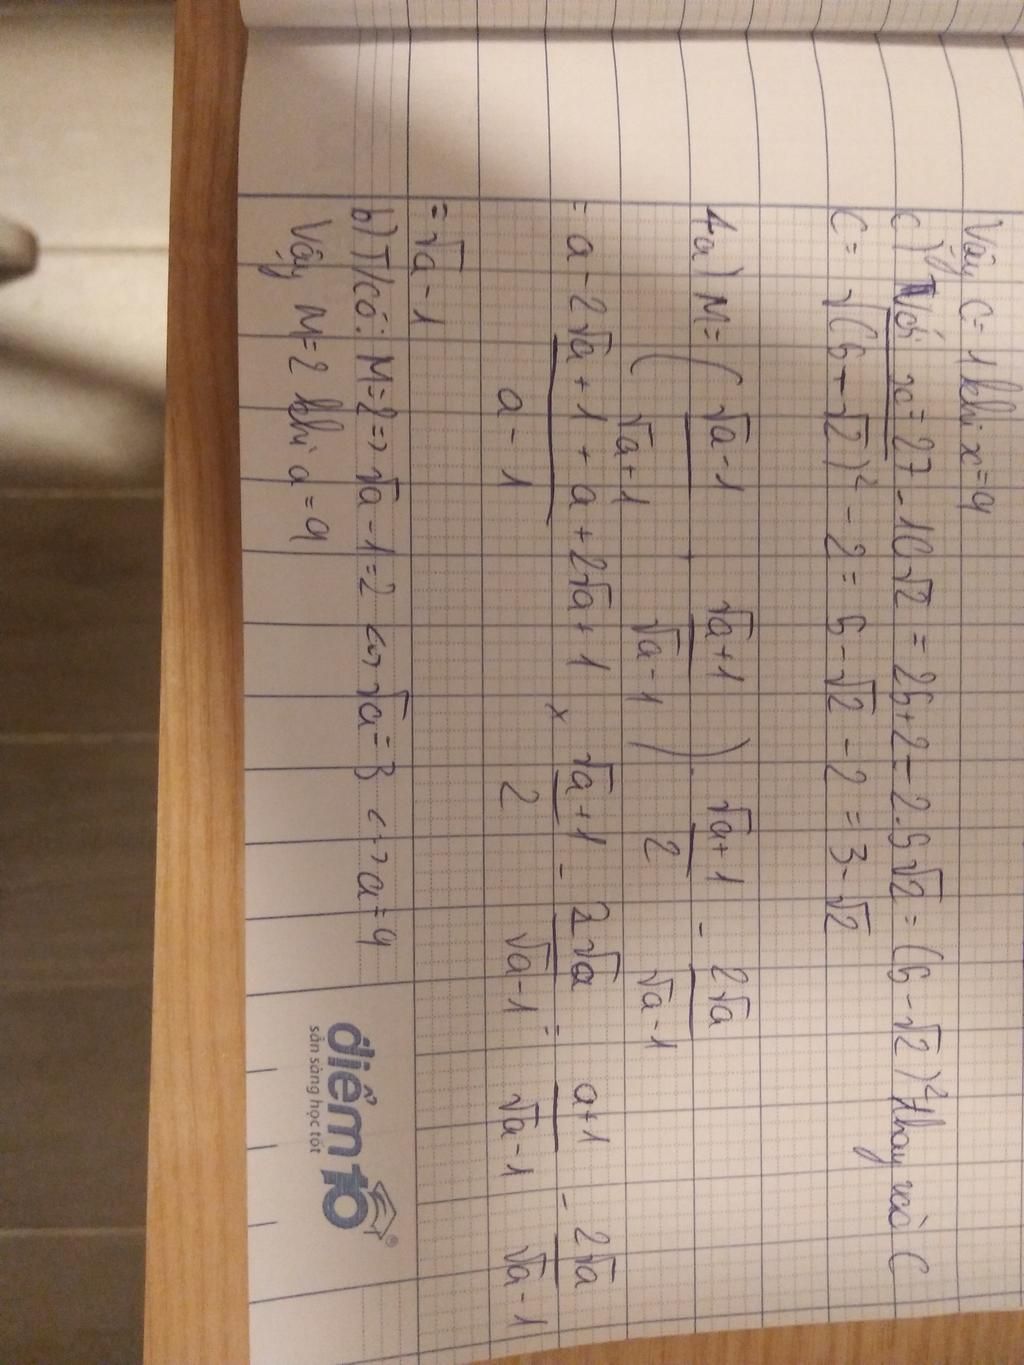 Vậy C = 1 khi x = 9
c) Với x = 27 - 10√2 = 25 + 2 - 2.5√2 = (5 - √2)² thay vào C
C = √(5 - √2)² - 2 = 5 - √2 - 2 = 3 - √2
4a) M = ( (√a - 1)/(√a + 1) (√a + 1)/(√a - 1) ) . (√a + 1)/2 - 2√a/(√a - 1)
= (a - 2√a + 1 + a + 2√a + 1)/(a - 1) × (√a + 1)/2 - 2√a/(√a - 1) = (a + 1)/(√a - 1) - 2√a/(√a - 1)
= √a - 1
b) T/có: M = 2 => √a - 1 = 2 <=> √a = 3 <=> a = 9
Vậy M = 2 khi a = 9
điểm 10 ®
sẵn sàng học tốt